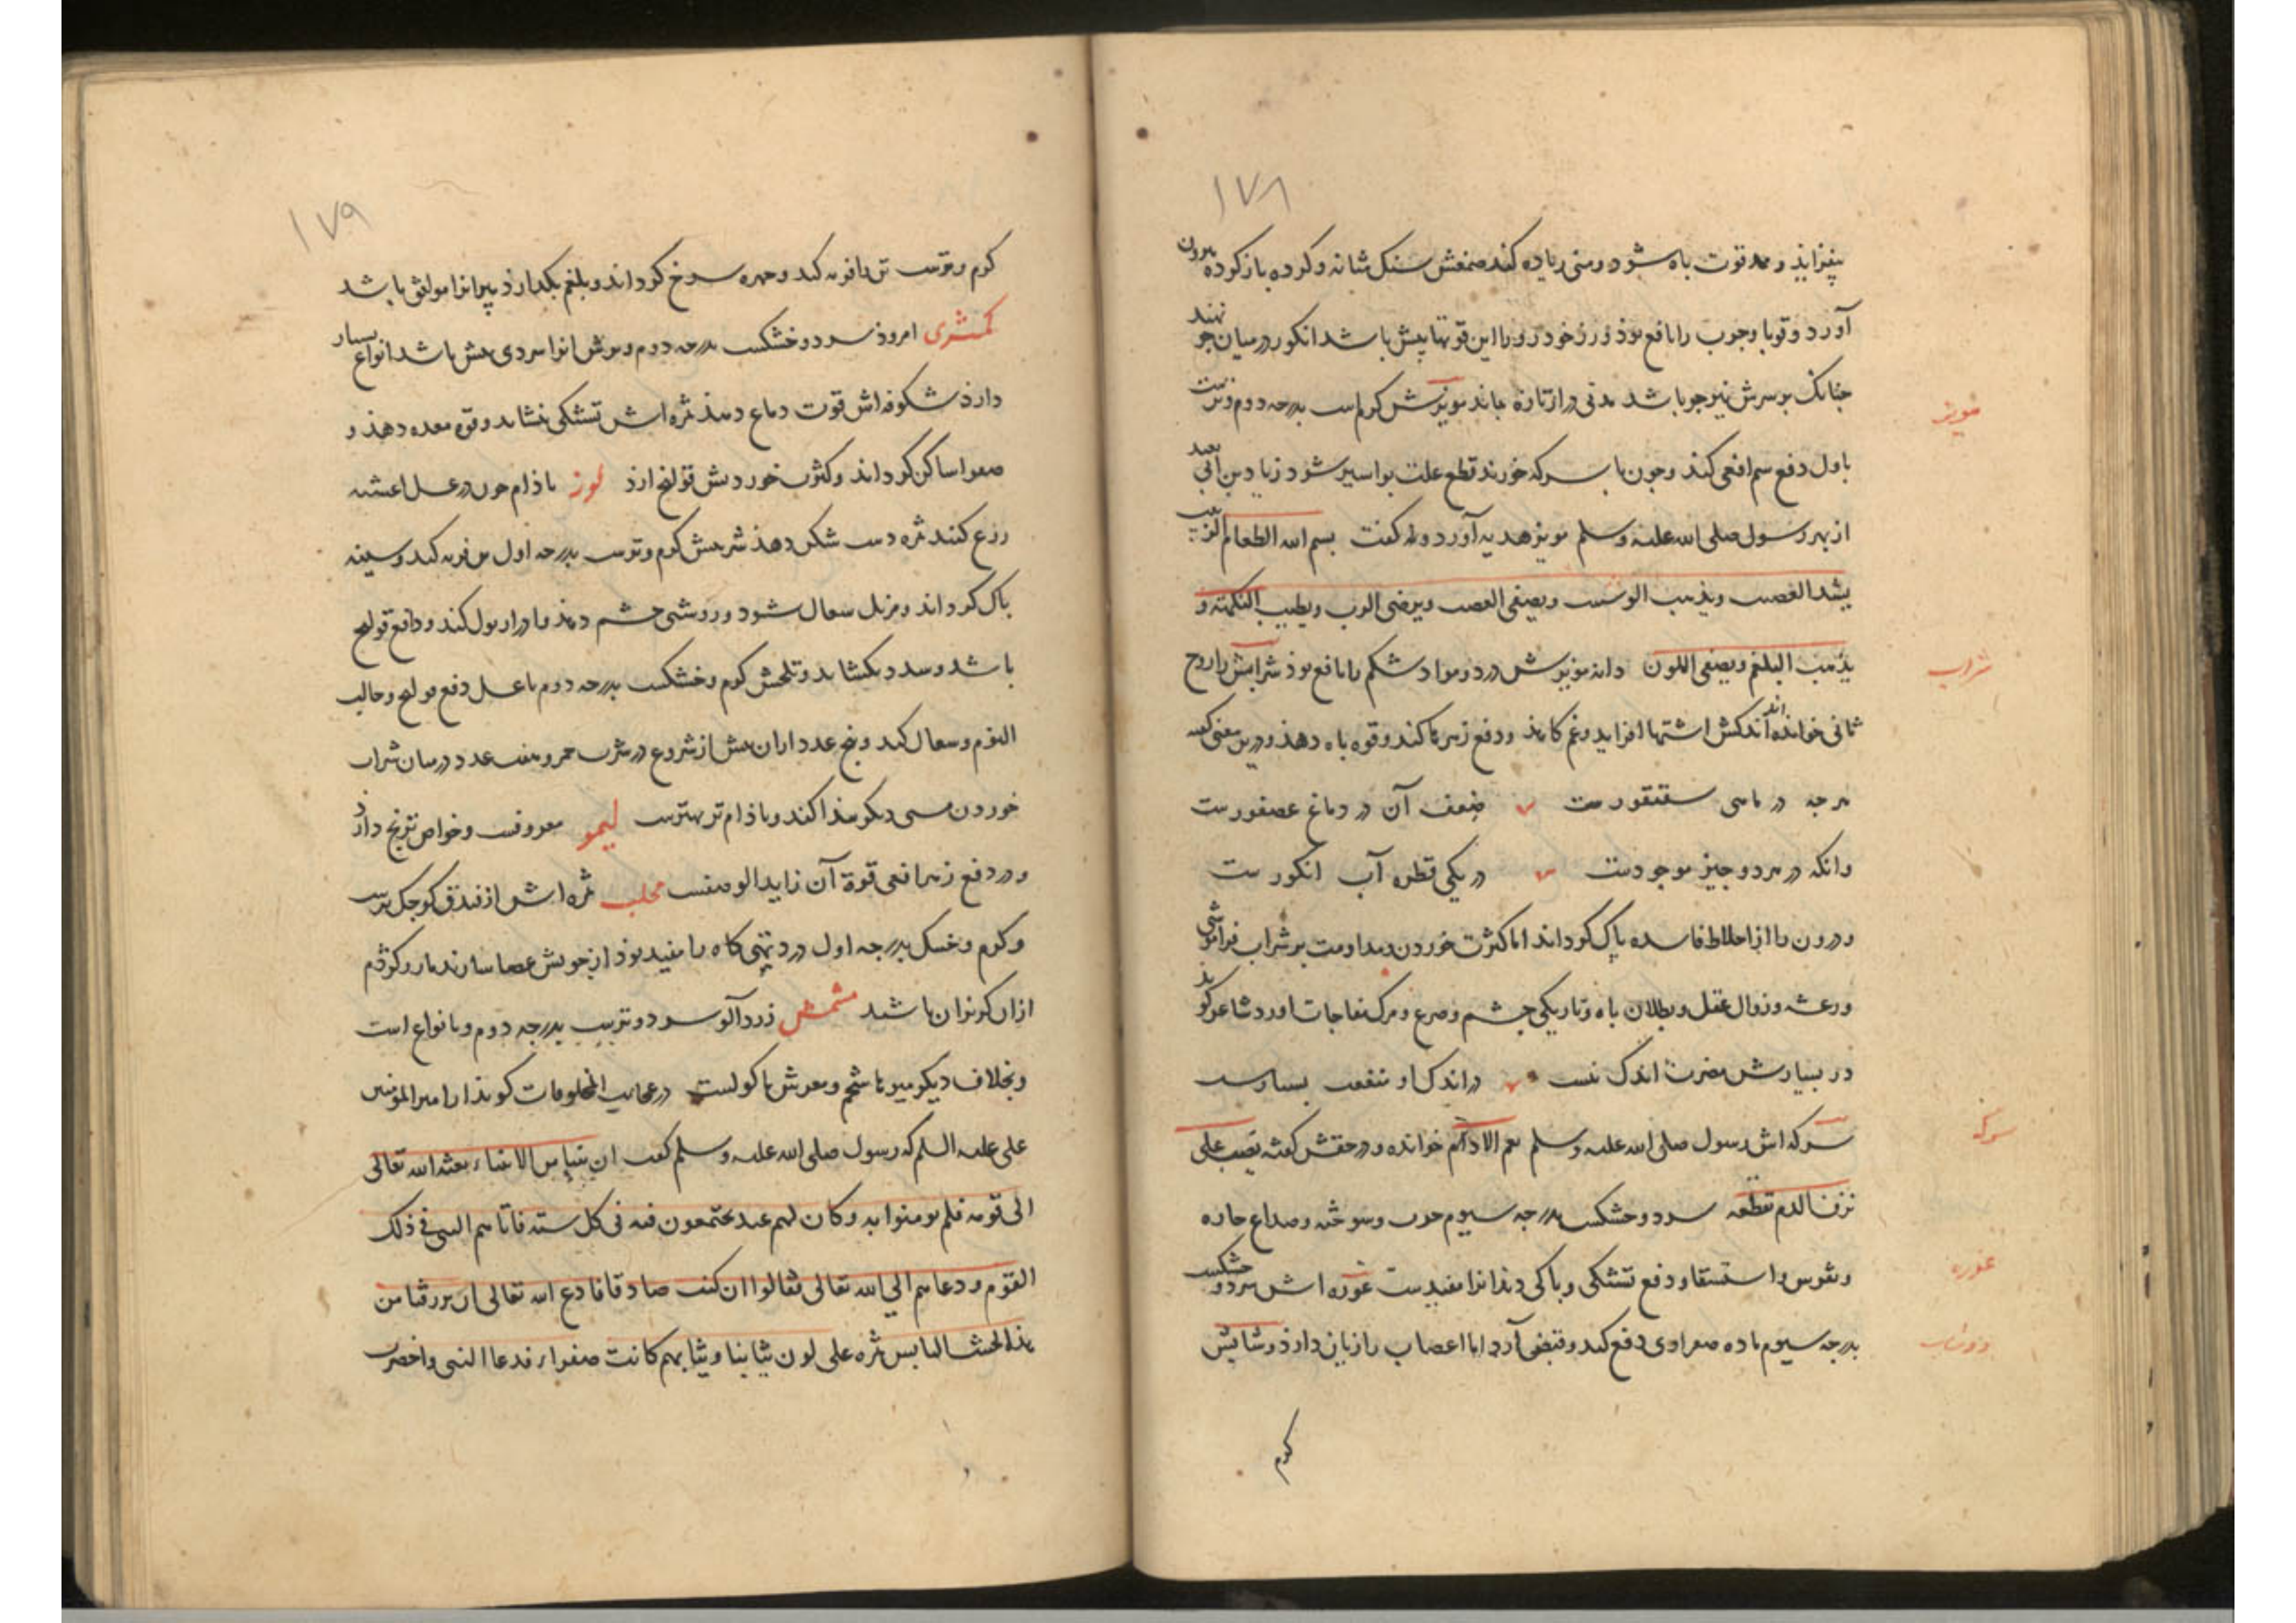 ۱۷۸
بیفزاید و ممد قوت باه شود و منی زیاده کند صمغش سنک مثانه و کرده باز کرده بیرون
آورد و قوبا و جوب را نافع بوذ و رز خودرو را این قوتها بیش باشد انکور در میان جو نهند
جنانک بر سرش نیز جو باشد مدتی دراز تازه بماند مویزش کرمست بدرجه دوم و ترست
مویز
باول دفع سم افعی کند و جون با سرکه خورند قطع علت بواسیر شود زیاد بن ابی
از بهر رسول صلی الله علیه وسلم مویز هدیه آورد و له کفت بسم الله الطعام الزبیب
یشد العصب ویذهب الوصب ویطفی الغضب ویرضی الرب ویطیب النکهته و
یذهب البلغم ویصفی اللون دانه مویزش درد و مواد شکم را نافع بوذ شرابش را روح
شراب
ثانی خوانده اند اندکش اشتها افزاید و غم کاهذ و دفع زهرها کند و قوه باه دهذ و درین معنی کفته
هرجه در ماهی سقنقورست ضعف آن در دماغ عصفورست
وانکه در هردو جیز موجودست در یکی قطره آب انکورست
و درون را از اخلاط فاسده پاک کرداند اما کثرت خوردن و مداومت بر شراب فراموشی
و رعشه و زوال عقل و بطلان باه و تاریکی جشم و صرع و مرک مفاجات اورد شاعر کوید
در بسیارش مضرت اندک نیست در اندک او منفعت بسیارست
سرکه اش رسول صلی الله علیه وسلم نعم الادام خوانده و در حقش کفته یصب علی
سرکه
نزف الدم تقطعه سرد و خشکست بدرجه سیوم جرب و سوخته و صداع حاره
و نقرس و استسقا و دفع تشنکی و پاکی دندانرا مفیدست غوره اش سرد و خشکست
غوره
بدرجه سیوم ماده صفراوی دفع کند و قبض آرد اما اعصاب را زیان دارذ دوشابش
دوشاب
کرم
۱۷۹
کرم و ترست تن را فربه کند و جهره سرخ کرداند و بلغم بکدازد پیرانرا موافق باشد
کمثری امروذ سرد و خشکست بدرجه دوم و ترش انرا سردی بیش باشد انواع بسیار
دارذ شکوفه اش قوت دماغ دهذ ثمره اش تشنکی بنشاند و قوه معده دهذ و
صفرا ساکن کرداند و کثرت خوردنش قولنج ارذ لوز باذام جون در عسل اغشته
زرع کنند ثمره دست شکن دهذ شیرینش کرم و ترست بدرجه اول تن فربه کند و سینه
پاک کرداند و مزیل سعال شود و روشنی جشم دهذ و ادرار بول کند و دافع قولنج
باشد و سدد بکشاید و تلخش کرم و خشکست بدرجه دوم با عسل دفع قولنج و جالب
النوم و سعال کند و پنج عدد از ان پیش از شروع در شرب خمر و هفت عدد در میان شراب
خوردن مستی دیکر مذا کند و باذام تر بهترست لیمو معروفست و خواص ترنج دارد
و در دفع زهر افعی قوة آن زاید الوصفست محلب ثمره اش از فندق کوجک ترست
و کرم و خشک بدرجه اول درد تهی کاه را مفید بوذ از جوبش عصا سازند مار و کژدم
از ان کریزان باشد مشمش زردآلو سرد و ترست بدرجه دوم و بانواع است
و بخلاف دیکر میوها شحم و مغزش ماکولست در عجایب المخلوقات کوید از امیر المؤمنین
علی علیه السلم که رسول صلی الله علیه وسلم کفت ان نبیا من الانبیاء بعثه الله تعالی
الی قومه فلم یومنوا به و کان لهم عید یجتمعون فیه فی کل سنه فاتاهم النبی فی ذلک
القوم و دعاهم الی الله تعالی فقالوا ان کنت صادقا فادع الله تعالی ان یرزقنا من
هذا الخشب الیابس ثمره علی لون ثیابنا و ثیابهم کانت صفراء فدعا النبی و اخضرت